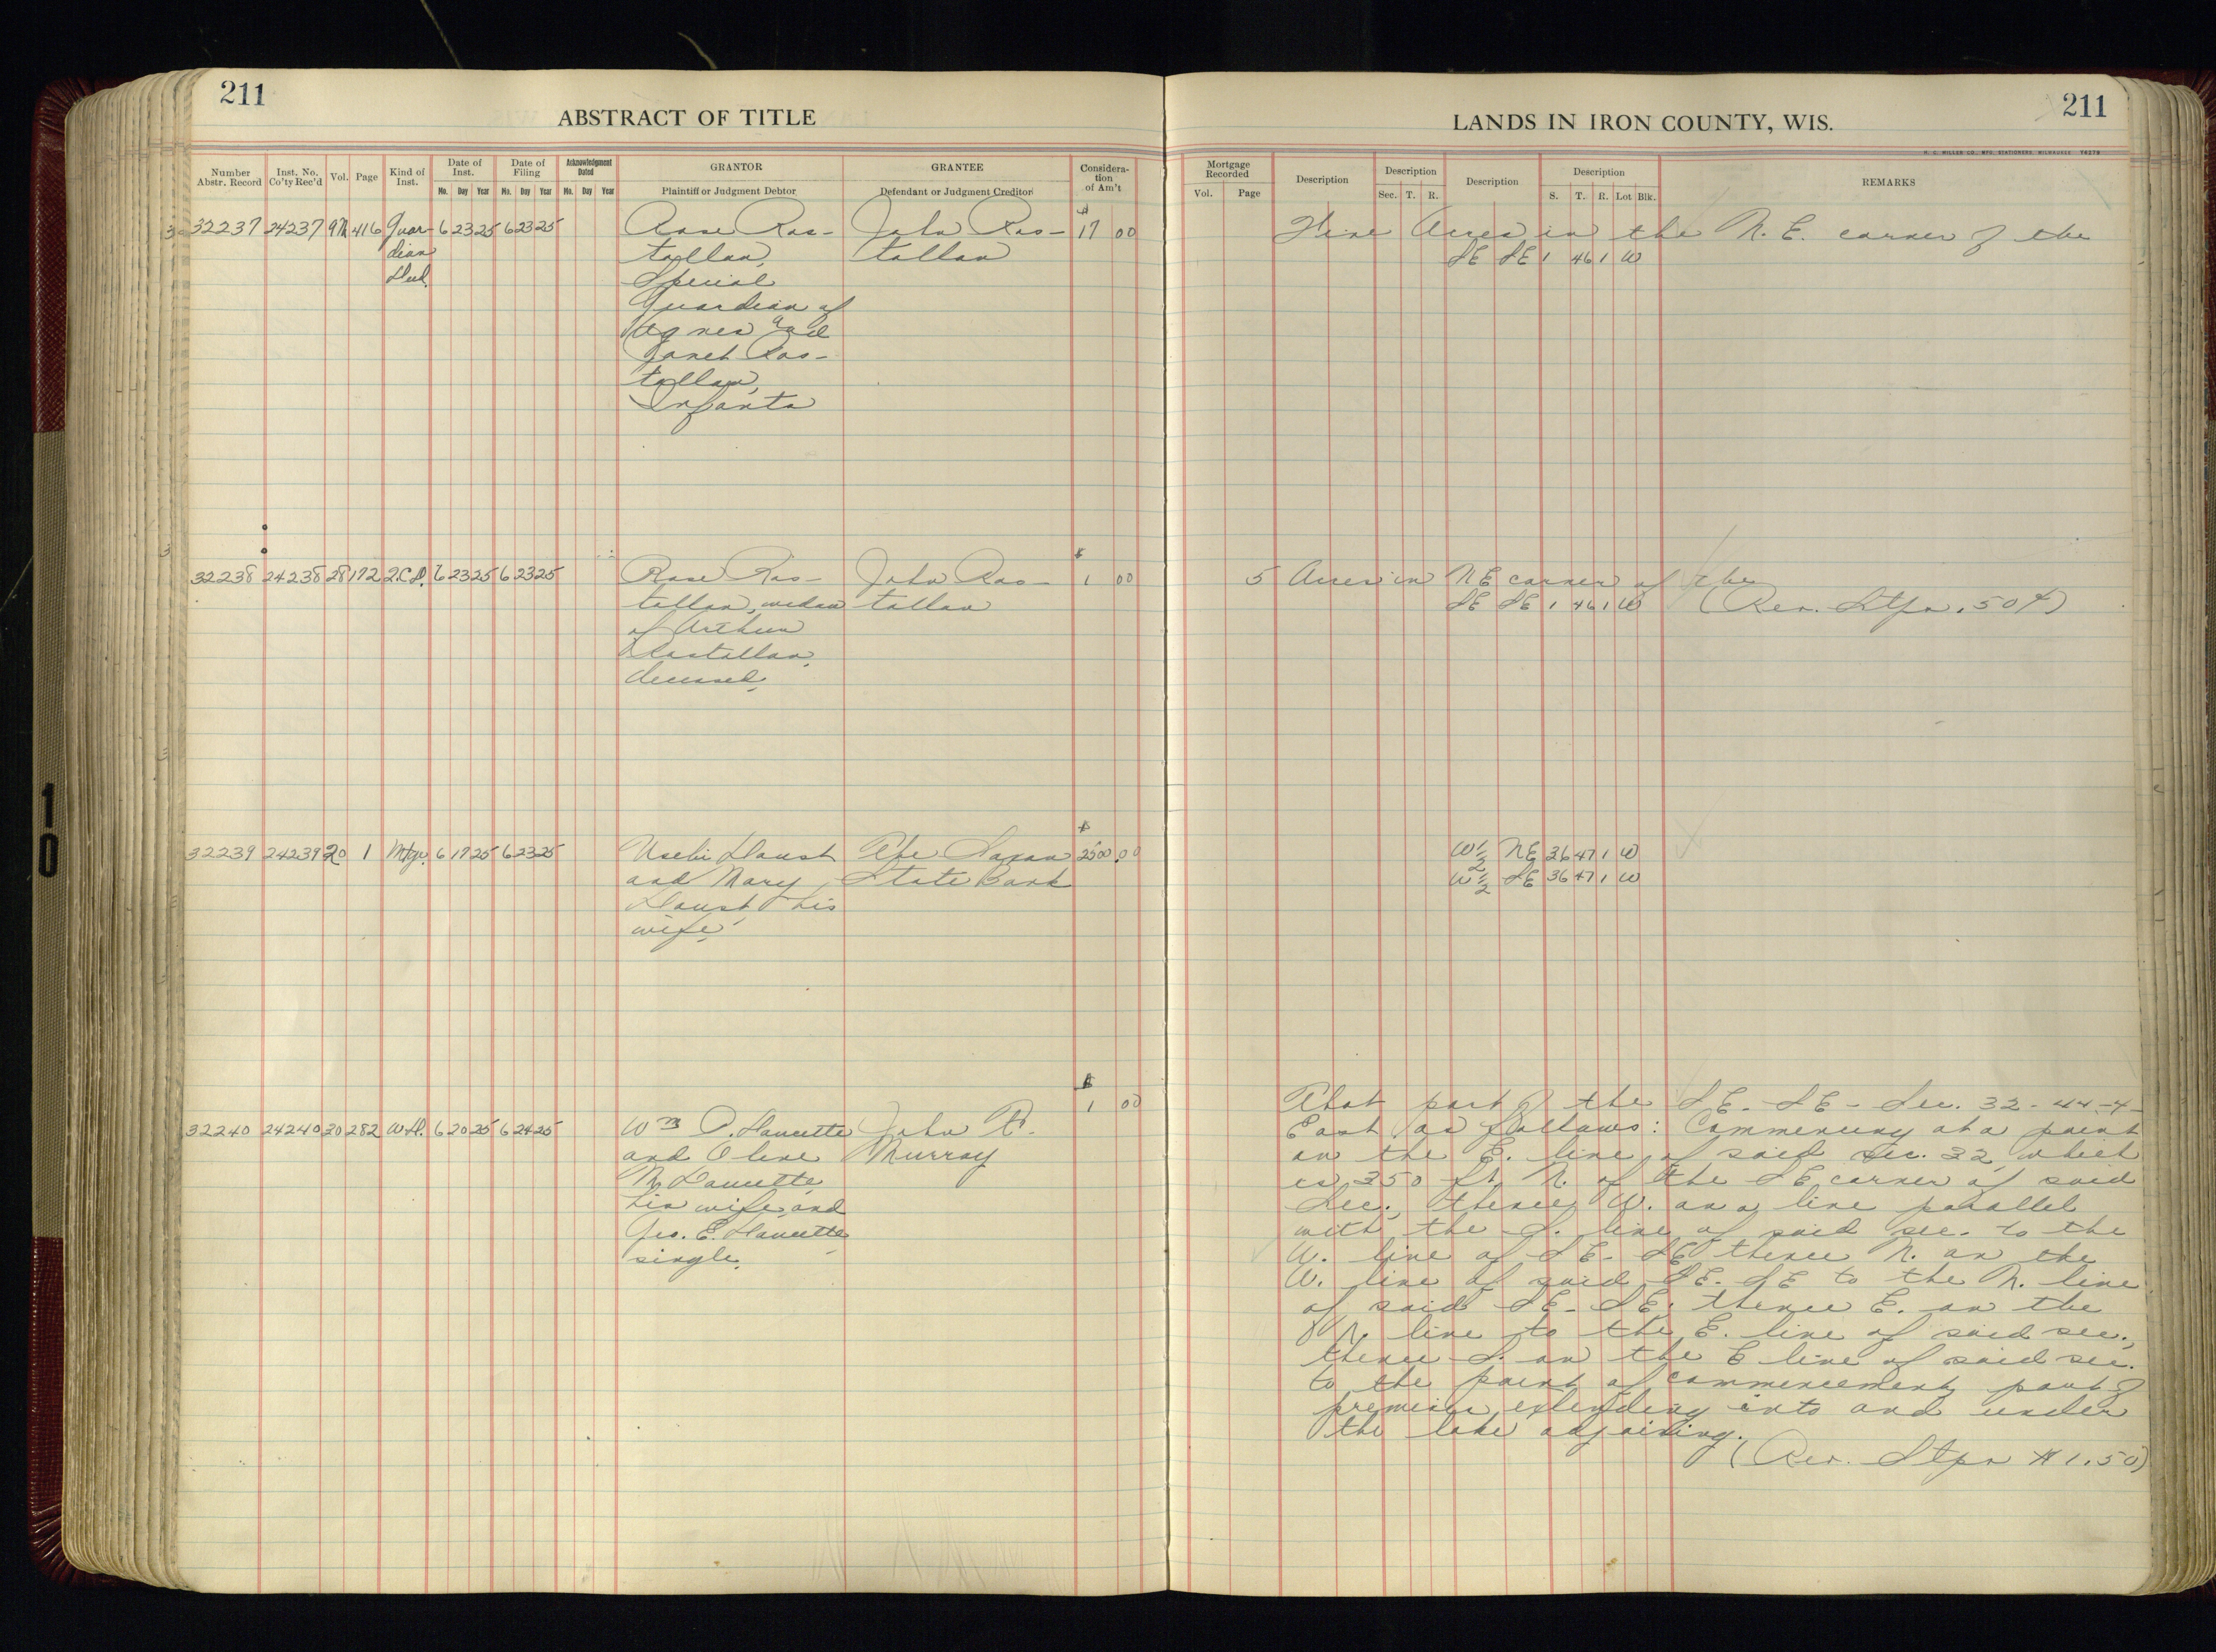 211
ABSTRACT OF TITLE
Number Abstr. Record
Inst. No. Co'ty Rec'd
Vol.
Page
Kind of Inst.
Date of Inst.
Mo. Day Year
Date of Filing
Mo. Day Year
Acknowledgment Dated
Mo. Day Year
GRANTOR
Plaintiff or Judgment Debtor
GRANTEE
Defendant or Judgment Creditor
Considera-
tion
of Am't
32237 24237 416 Guar- 6 23 25 6 23 25 Rose Ras- John Ras- $17 00
dian tallan, tallan
Deed Special
Guardian of
Agnes and
Janet Ras-
tallan,
Infants
32238 24238 28 172 2.C.D. 6 23 25 6 23 25 Rose Ras- John Ras- $1 00
tallan, widow tallan
of Arthur
Rastallan,
deceased.
32239 24239 20 1 Mtge. 6 17 25 6 23 25 The Saxon $2500.00
and Mary State Bank
his
wife
32240 24240 20 282 W.D. 6 20 25 6 24 25 Wm John $1 00
and Olive Murray
M.
his wife, and
Geo. E.
single.
211
LANDS IN IRON COUNTY, WIS.
H. C. MILLER CO., MFG. STATIONERS, MILWAUKEE 74278
Mortgage Recorded
Vol. Page
Description
Description
Sec. T. R.
Description
Description
S. T. R. Lot Blk.
REMARKS
Five Acres in the N. E. corner of the
SE SE 1 46 1 W
5 Acres in NE corner of the
SE SE 1 46 1 W (Rev. Stps. 50¢)
W½ NE 36 47 1 W
W½ SE 36 47 1 W
That part of the SE-SE-Sec. 32-44-4-
East as follows: Commencing at a point
on the E. line of said Sec. 32, which
is 350 ft. N. of the SE corner of said
Sec., thence W. on a line parallel
with the S. line of said sec. to the
W. line of SE-SE thence N. on the
W. line of said SE-SE to the N. line
of said SE-SE; thence E. on the
N. line to the E. line of said sec.,
thence S. on the E line of said sec.
to the point of commencement, part of
premises extending into and under
the lake adjoining.
(Rev. Stps $1.50)